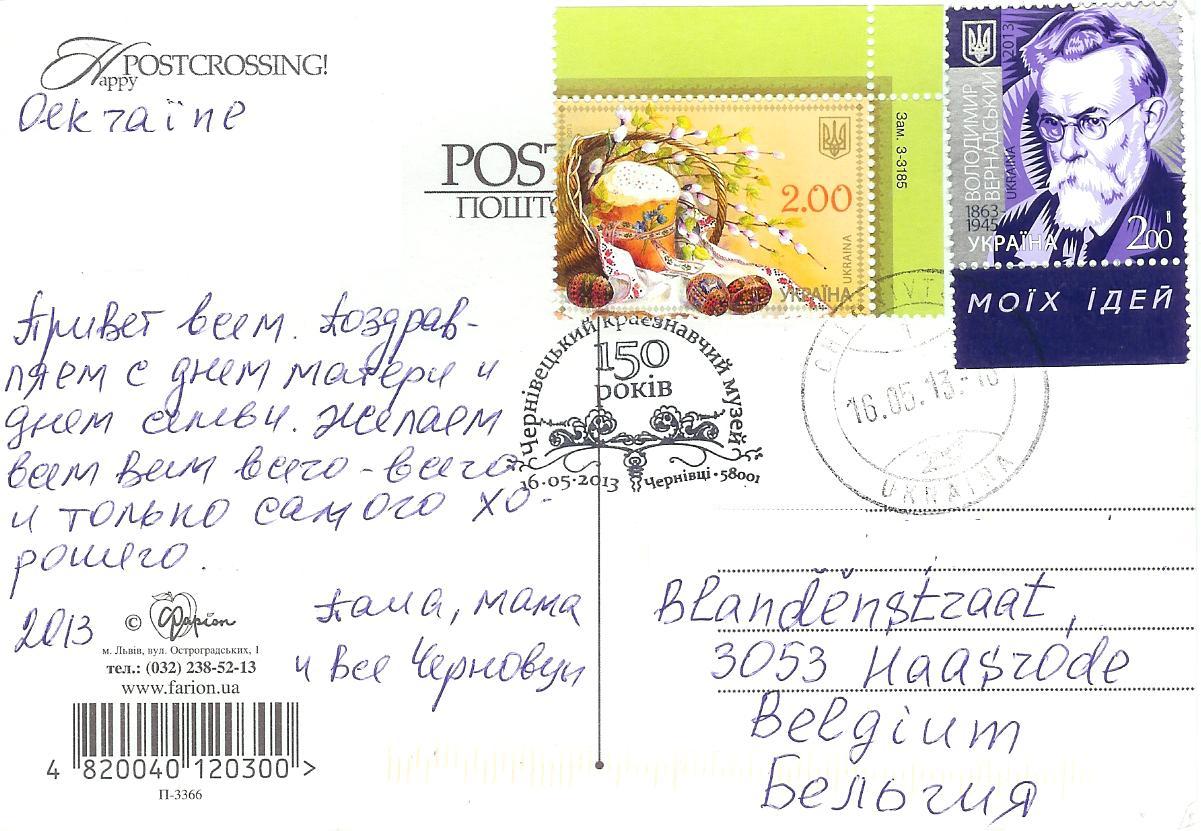 Happy POSTCROSSING!
Oekraïne
POST
ПОШТО
Привет всем. Поздрав-
ляем с днем матери и
днем семьи. Желаем
всем Вам всего-всего
и только самого хо-
рошего.
Папа, мама
и все Черновцы
2013
© Фарion
м. Львів, вул. Остроградських, 1
тел.: (032) 238-52-13
www.farion.ua
4 820040 120300 >
П-3366
2.00
УКРАЇНА
UKRAINA
Зам. 3-3185
2013
ВОЛОДИМИР
ВЕРНАДСЬКИЙ
UKRAINA
1863
1945
УКРАЇНА
2.00
МОЇХ ІДЕЙ
Чернівецький краєзнавчий музей
150
років
16·05·2013
Чернівці·58001
16.05.13-18
UKRAINA
Blandenstraat,
3053 Haasrode
Belgium
Бельгия